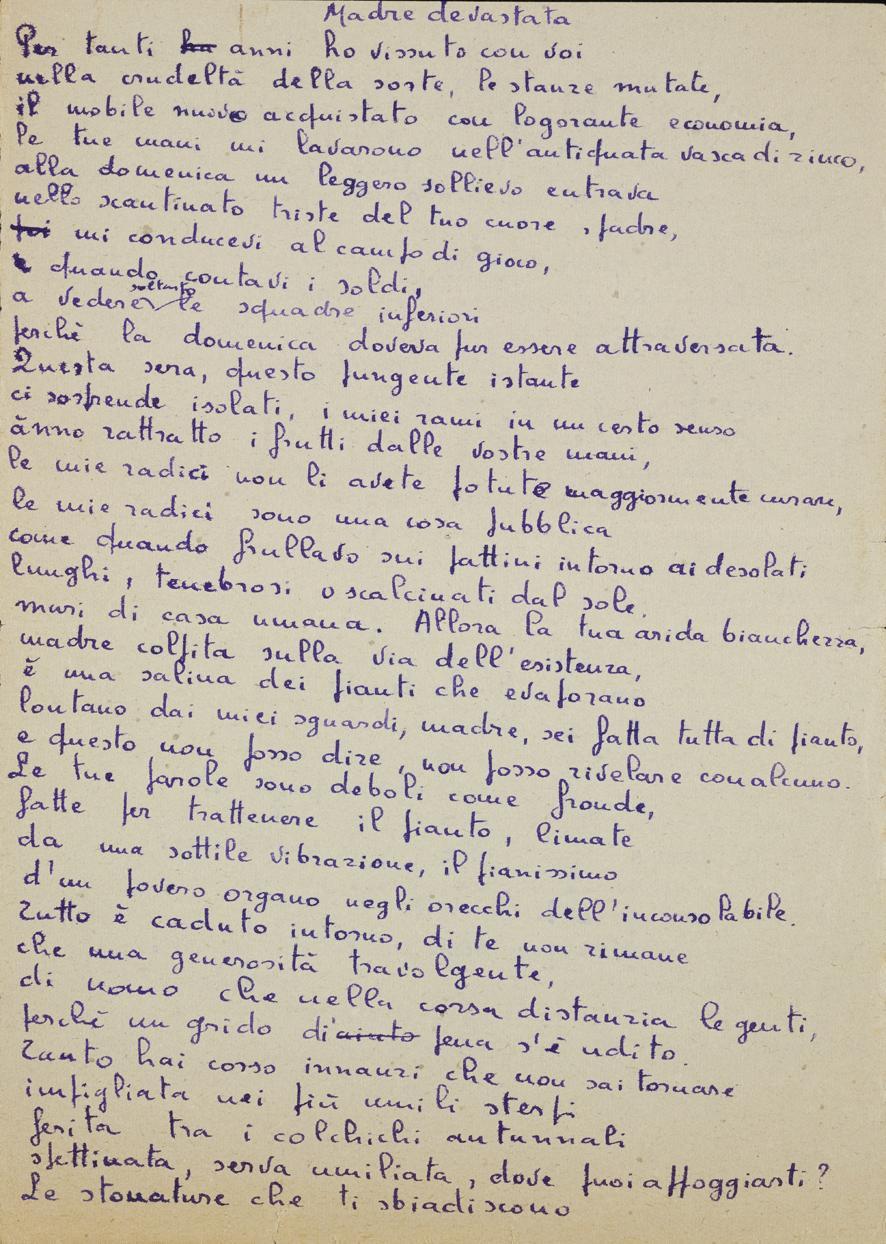 Madre devastata
Per tanti ha anni ho vissuto con voi
nella crudeltà della sorte, le stanze mutate,
il mobile nuovo acquistato con logorante economia,
le tue mani mi lavarono nell'antiquata vasca di zinco,
alla domenica un leggero sollievo entrava
nello scantinato triste del tuo cuore, padre,
poi mi conducevi al campo di gioco,
quando contavi i soldi,
a vedere soltanto le squadre inferiori
perchè la domenica doveva pur essere attraversata.
Questa sera, questo pungente istante
ci sorprende isolati, i miei rami in un certo senso
ànno rattratto i frutti dalle vostre mani,
le mie radici non li avete potute maggiormente curare,
le mie radici sono una cosa pubblica
come quando frullavo sui pattini intorno ai desolati
lunghi, tenebrosi o scalcinati dal sole.
muri di casa umana. Allora la tua arida bianchezza,
madre colpita sulla via dell'esistenza,
è una salina dei pianti che evaporano
lontano dai miei sguardi, madre, sei fatta tutta di pianto,
e questo non posso dire, non posso rivelare con alcuno.
Le tue parole sono deboli come fronde,
fatte per trattenere il pianto, limate
da una sottile vibrazione, il pianissimo
d'un povero organo negli orecchi dell'inconsolabile.
Tutto è caduto intorno, di te non rimane
che una generosità travolgente,
di uomo che nella corsa distanzia le genti,
perchè un grido di aiuto pena s'è udito.
Tanto hai corso innanzi che non sai tornare
impigliata nei più umili sterpi
ferita tra i colchichi autunnali
spettinata, serva umiliata, dove puoi appoggiarti?
Le stonature che ti sbiadiscono